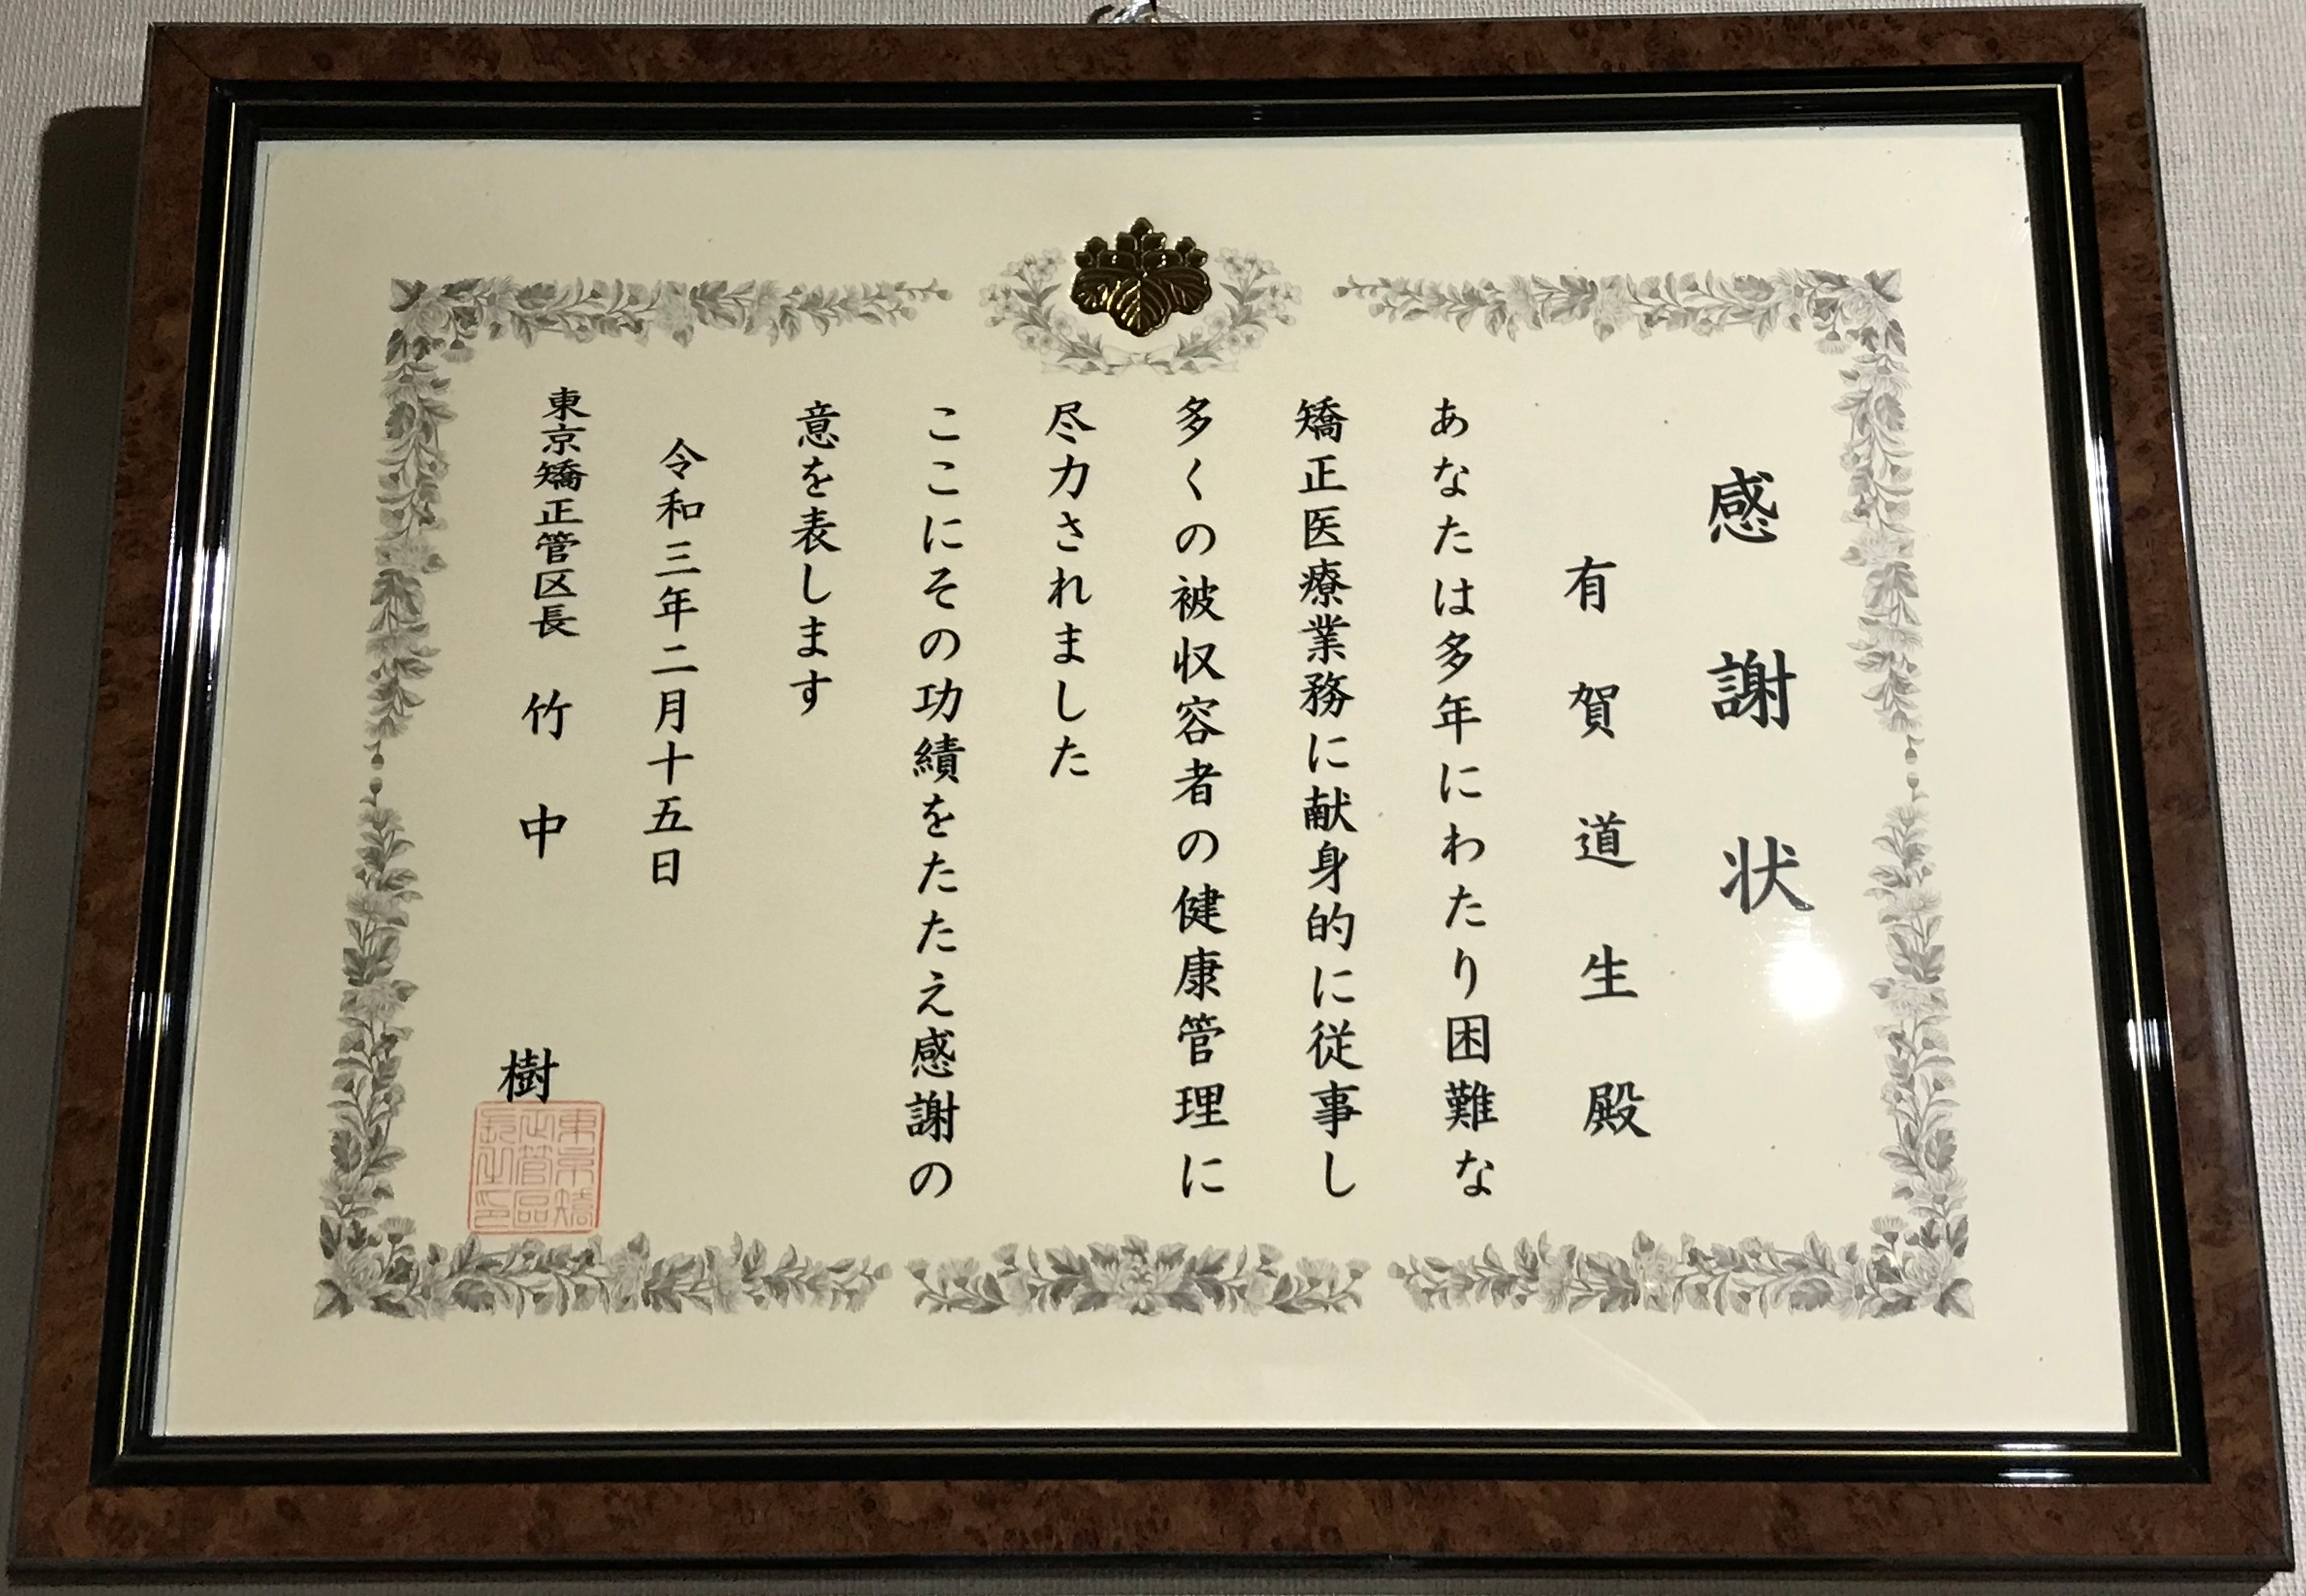 感謝状
有賀道生殿
あなたは多年にわたり困難な
矯正医療業務に献身的に従事し
多くの被収容者の健康管理に
尽力されました
ここにその功績をたたえ感謝の
意を表します
令和三年二月十五日
東京矯正管区長 竹中 樹
東京矯正管区長之印